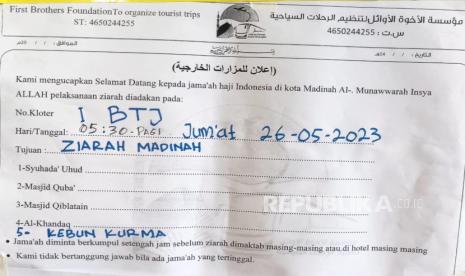 First Brothers FoundationTo organize tourist trips
ST: 4650244255
مؤسسة الأخوة الأوائل لتنظيم الرحلات السياحية
س.ت : 4650244255
الموافق: / / ٢٠م
التاريخ: / / ١٤هـ
(إعلان للمزارات الخارجية)
Kami mengucapkan Selamat Datang kepada jama'ah haji Indonesia di kota Madinah Al-. Munawwarah Insya
ALLAH pelaksanaan ziarah diadakan pada:
No.Kloter I BTJ
Hari/Tanggal: 05:30-PAGI Jum'at 26-05-2023
Tujuan: ZIARAH MADINAH
1-Syuhada' Uhud
2-Masjid Quba'
3-Masjid Qiblatain
4-Al-Khandaq
5- KEBUN KURMA
• Jama'ah diminta berkumpul setengah jam sebelum ziarah dimaktab masing-masing atau.di hotel masing masing
• Kami tidak bertanggung jawab bila ada jama'ah yang tertinggal.
REPUBLIKA